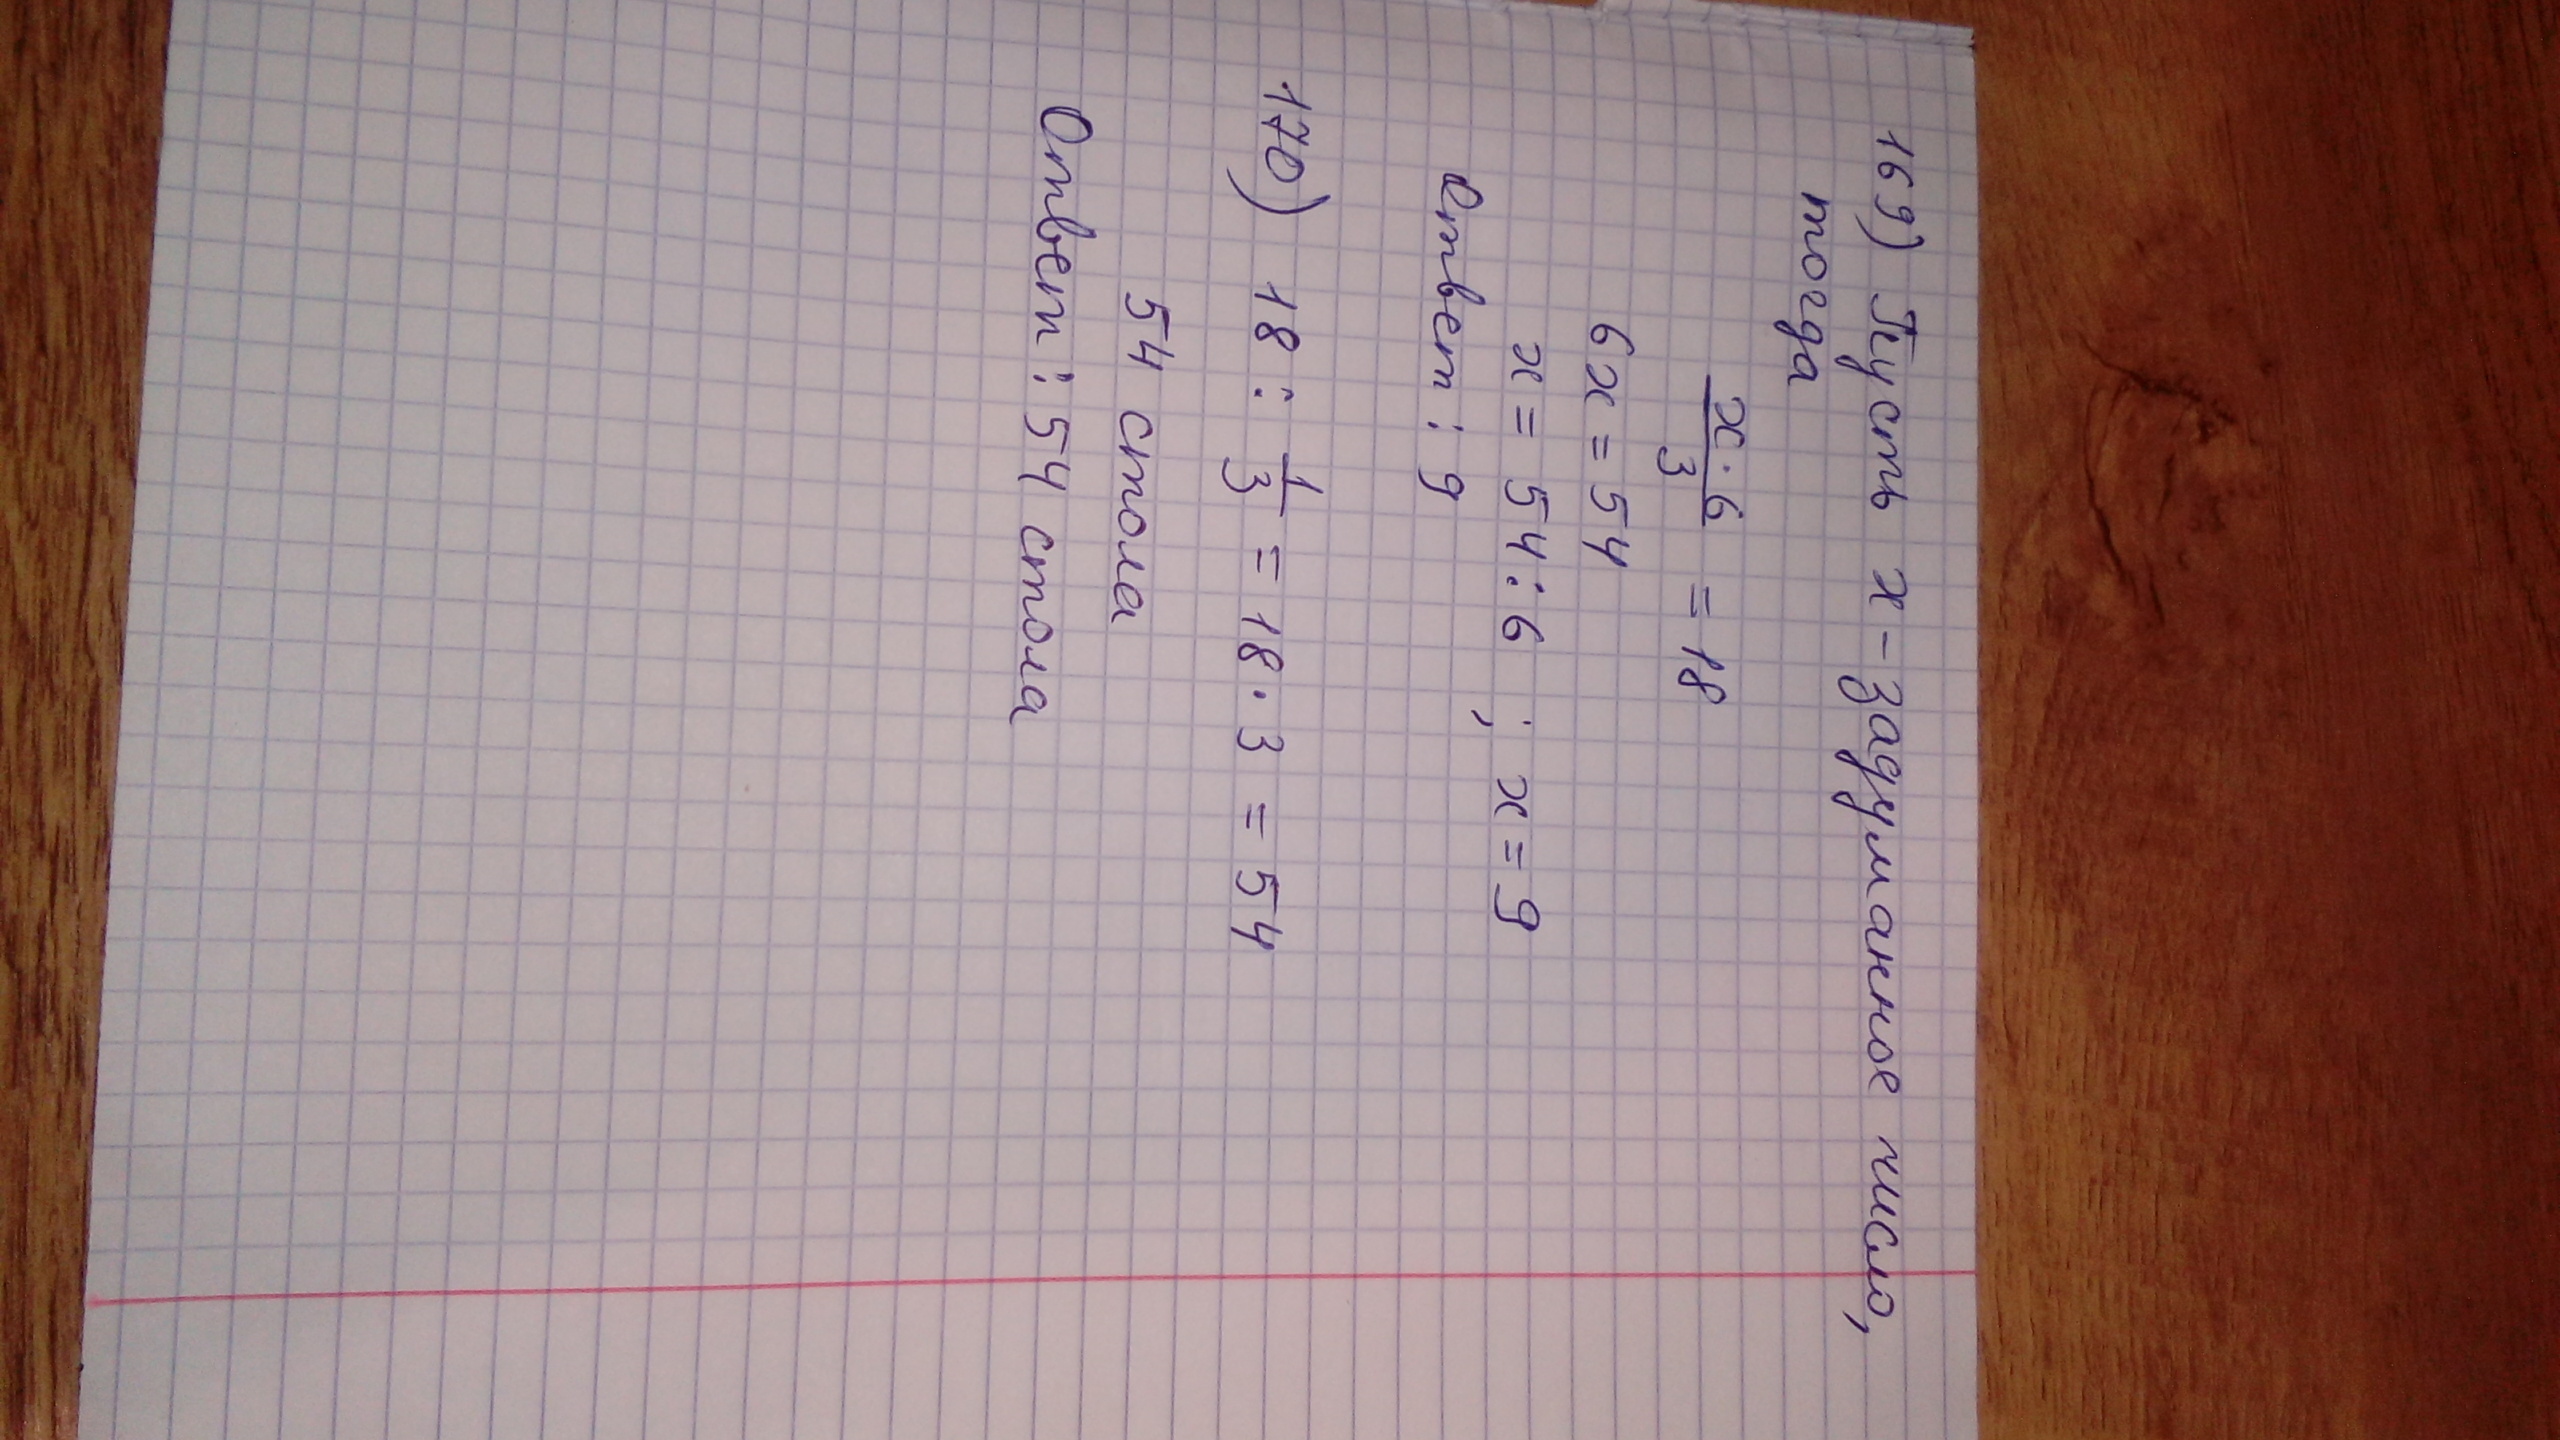 169) Пусть x - задуманное число,
тогда
x · 6 / 3 = 18
6x = 54
x = 54 : 6 ; x = 9
Ответ : 9
170) 18 : 1/3 = 18 · 3 = 54
54 стола
Ответ : 54 стола